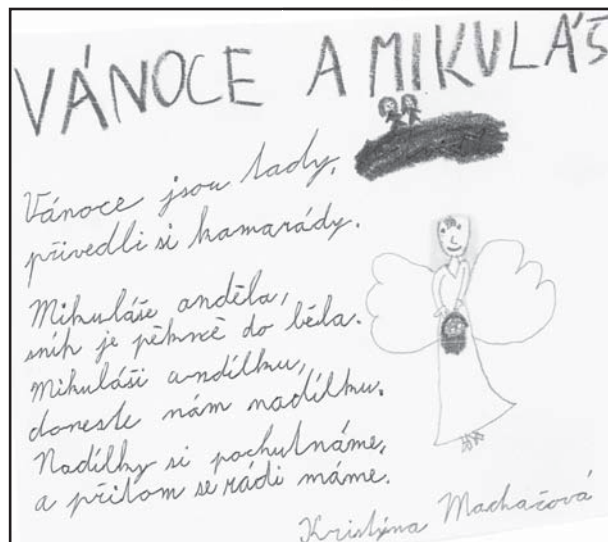 VÁNOCE A MIKULÁŠ
Vánoce jsou tady,
přivedli si kamarády.
Mikuláše anděla,
sníh je pěkně do běla.
Mikuláši andílku,
doneste nám nadílku.
Nadílky si pochutnáme,
a přitom se rádi máme.
Kristýna Machačová